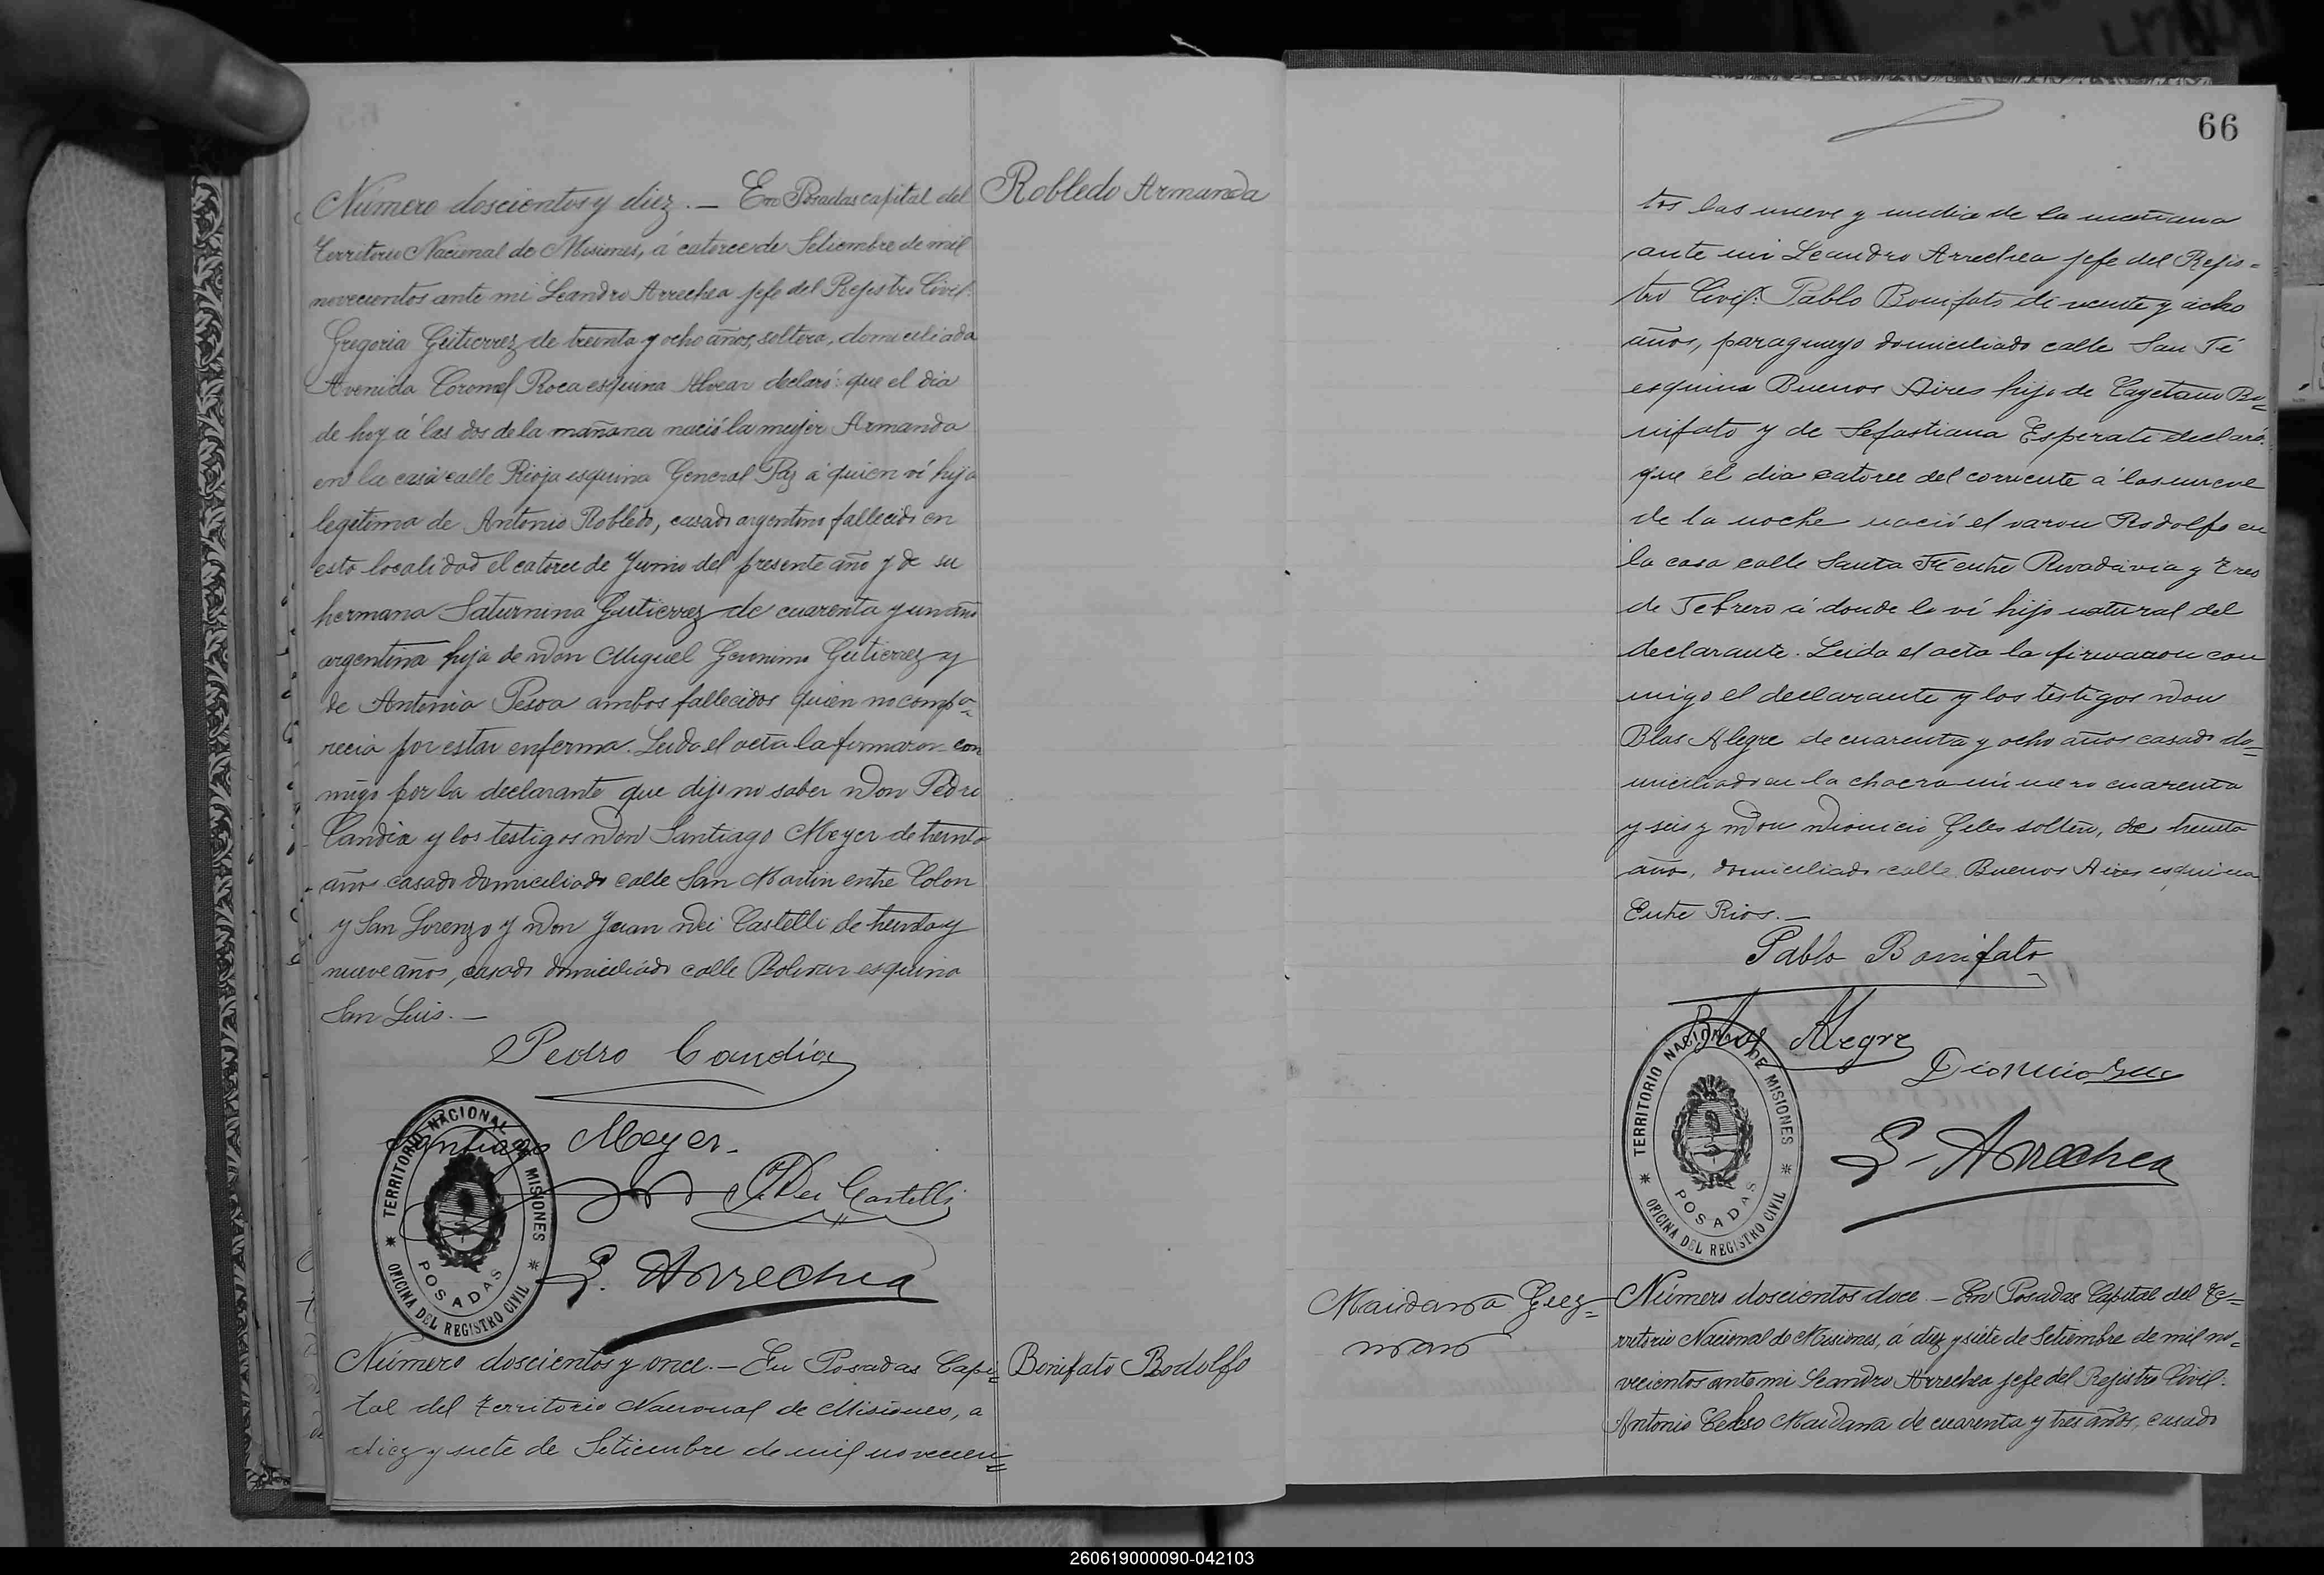 Número doscientos y diez. — En Posadas capital del
Robledo Armanda
Territorio Nacional de Misiones, á catorce de Setiembre de mil
novecientos ante mi Leandro Arrechea jefe del Rejistro Civil:
Gregoria Gutierrez de treinta y ocho años, soltera, domiciliada
Avenida Coronel Roca esquina Alvear declaró: que el dia
de hoy á las dos de la mañana nació la mujer Armanda
en la casa calle Rioja esquina General Paz á quien ví hija
legitima de Antonio Robledo, casado argentino fallecido en
esta localidad el catorce de Junio del presente año y de su
hermana Saturnina Gutierrez de cuarenta y un año
argentina hija de Don Miguel Geronimo Gutierrez y
de Antonia Pesoa ambos fallecidos quien no compa=
recia por estar enferma. Leida el acta la firmaron con
migo por la declarante que dijo no saber Don Pedro
Candia y los testigos Don Santiago Meyer de treinta
años casado domiciliado calle San Martin entre Colon
y San Lorenzo y Don Juan Dei Castelli de treinta y
nueve años, casado domiciliado calle Bolivar esquina
San Luis. —
Pedro Candia
Santiago Meyer.
J. Dei Castelli
L. Arrechea
TERRITORIO NACIONAL DE MISIONES
OFICINA DEL REGISTRO CIVIL
POSADAS
Número doscientos y once. — En Posadas Capi=
Bonifato Rodolfo
tal del Territorio Nacional de Misiones, a
diez y siete de Setiembre de mil novecien=
66
tos las nueve y media de la mañana
ante mi Leandro Arrechea jefe del Rejis=
tro Civil: Pablo Bonifato de veinte y ocho
años, paraguayo domiciliado calle San Fé
esquina Buenos Aires hijo de Cayetano Bo=
nifato y de Sefastiana Esperati declaró:
que el dia catorce del corriente á las nueve
de la noche nació el varon Rodolfo en
la casa calle Santa Fé entre Rivadavia y Tres
de Febrero á donde lo ví hijo natural del
declarante. Leida el acta la firmaron con
migo el declarante y los testigos Don
Blas Alegre de cuarenta y ocho años casado do=
miciliado en la chacra número cuarenta
y seis y Don Dionicio Geles soltero, de treinta
año, domiciliado calle Buenos Aires esquina
Entre Rios. —
Pablo Bonifato
Blas Alegre
Dionicio
L. Arrechea
TERRITORIO NACIONAL DE MISIONES
OFICINA DEL REGISTRO CIVIL
POSADAS
Maidana Guz=
man
Número doscientos doce. — En Posadas Capital del Te=
rritorio Nacional de Misiones, á diez y siete de Setiembre de mil no=
vecientos ante mi Leandro Arrechea jefe del Rejistro Civil:
Antonio Celso Maidana de cuarenta y tres años, casado
260619000090-042103